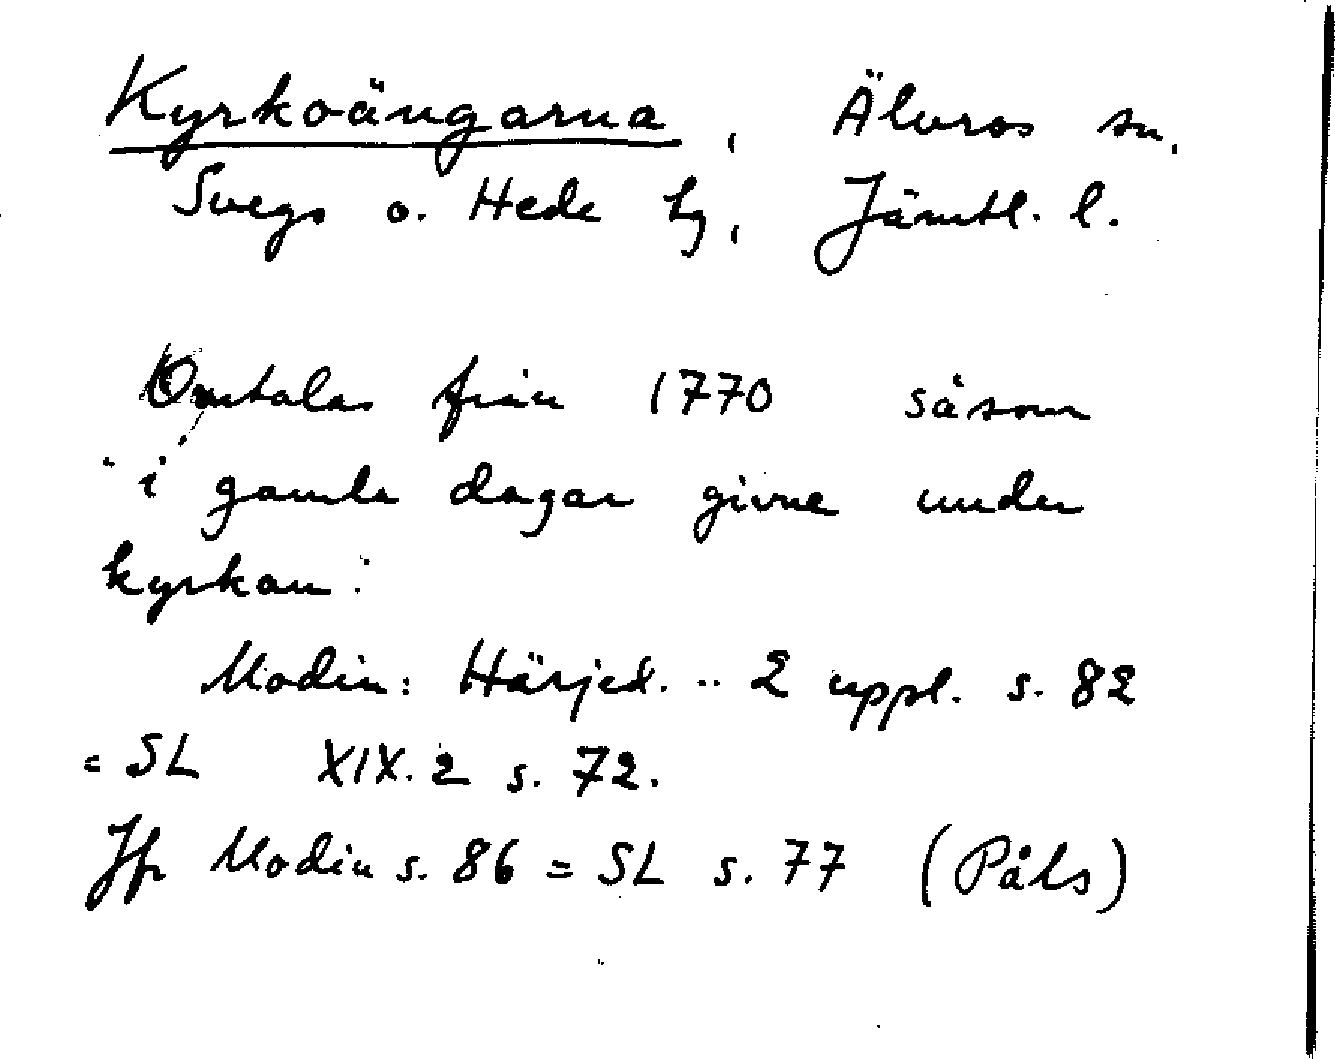 Kyrkoängarna, Älvros sn,
Svegs o. Hede tg, Jämtl. l.
Omtalas från 1770 såsom
"i gamla dagar givne under
kyrkan".
Modin: Härjed. .. 2 uppl. s. 82
= SL XIX. 2 s. 72.
Jfr Modin s. 86 = SL s. 77 (Påls)